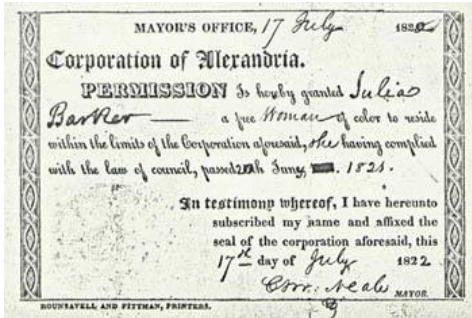 MAYOR'S OFFICE, 17 July 182
Corporation of Alexandria.
PERMISSION Is hereby granted Julia
Barker — a free Woman of color to reside
within the limits of the Corporation aforesaid, she having complied
with the law of council, passed 1821.
In testimony whereof, I have hereunto
subscribed my name and affixed the
seal of the corporation aforesaid, this
17th day of July 1822
Neale MAYOR.
ROUNSAVELL AND PITTMAN, PRINTERS.